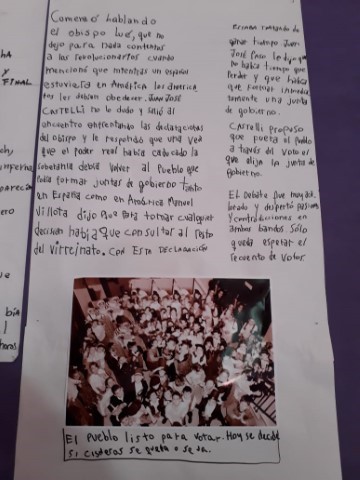 Comenzó hablando
el obispo Lué, que no
dejo para nada contentos
a los revolucionarios cuando
mencionó que mientras un español
estuviera en América los america
nos les debian obedecer. Juan José
CASTELLI no lo dudo y salió al
encuentro enfrentando las declaraciones
del obispo y le respondió que una vez
que el poder real había caducado la
soberanía debía volver al pueblo que
podía formar juntas de gobierno tanto
en España como en América Manuel
Villota dijo que para tomar cualquier
decision había que consultar al resto
del virreinato. CON ESTA DECLARACIÓN
ESTABA TRATANDO DE
ganar tiempo Juan
José Paso le dijo que
no había tiempo que
perder y que había
que formar inmedia
tamente una junta
de gobierno.
Castelli propuso
que fuera el pueblo
a través del voto el
que elija la junta de
gobierno.
El debate fue muy aca
lorado y despertó pasiones
y contradicciones en
ambos bandos sólo
queda esperar el
recuento de votos.
El pueblo listo para votar. Hoy se decide
si cisneros se queda o se va.
Y
FINAL